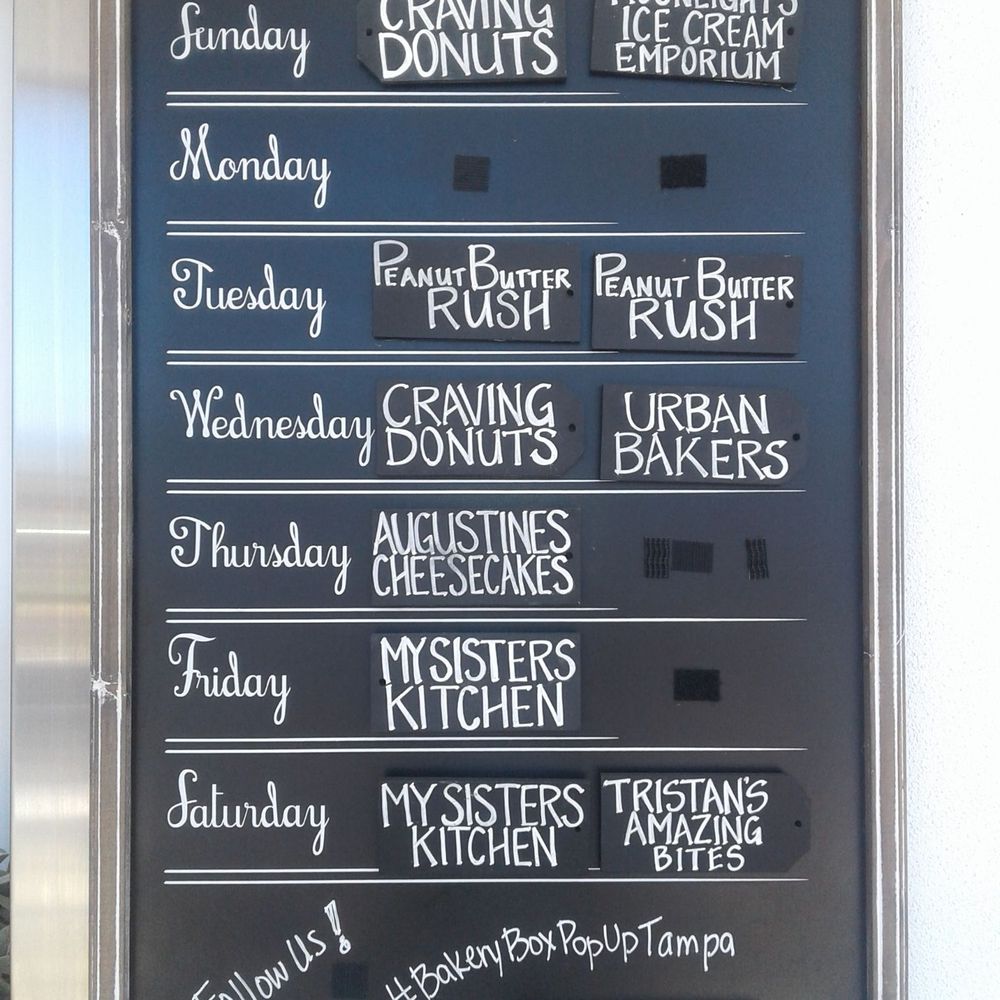 Sunday
CRAVING
DONUTS
MOONLIGHTS
ICE CREAM
EMPORIUM
Monday
Tuesday
PEANUT BUTTER
RUSH
PEANUT BUTTER
RUSH
Wednesday
CRAVING
DONUTS
URBAN
BAKERS
Thursday
AUGUSTINES
CHEESECAKES
Friday
MY SISTERS
KITCHEN
Saturday
MY SISTERS
KITCHEN
TRISTAN'S
AMAZING
BITES
Follow Us!
#BakeryBoxPopUpTampa